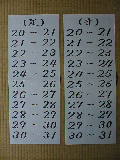 20－21
21－22
22－23
23－24
24－25
25－26
26－27
27－28
28－29
29－30
30－31
20－21
21－22
22－23
23－24
24－25
25－26
26－27
27－28
28－29
29－30
30－31